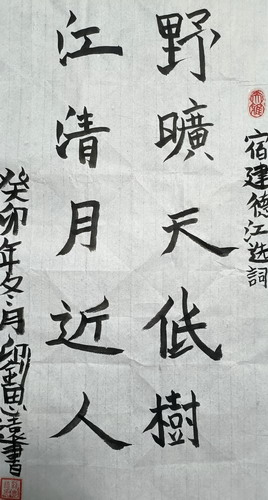 宿建德江选词
野曠天低樹
江清月近人
癸卯年冬月
書